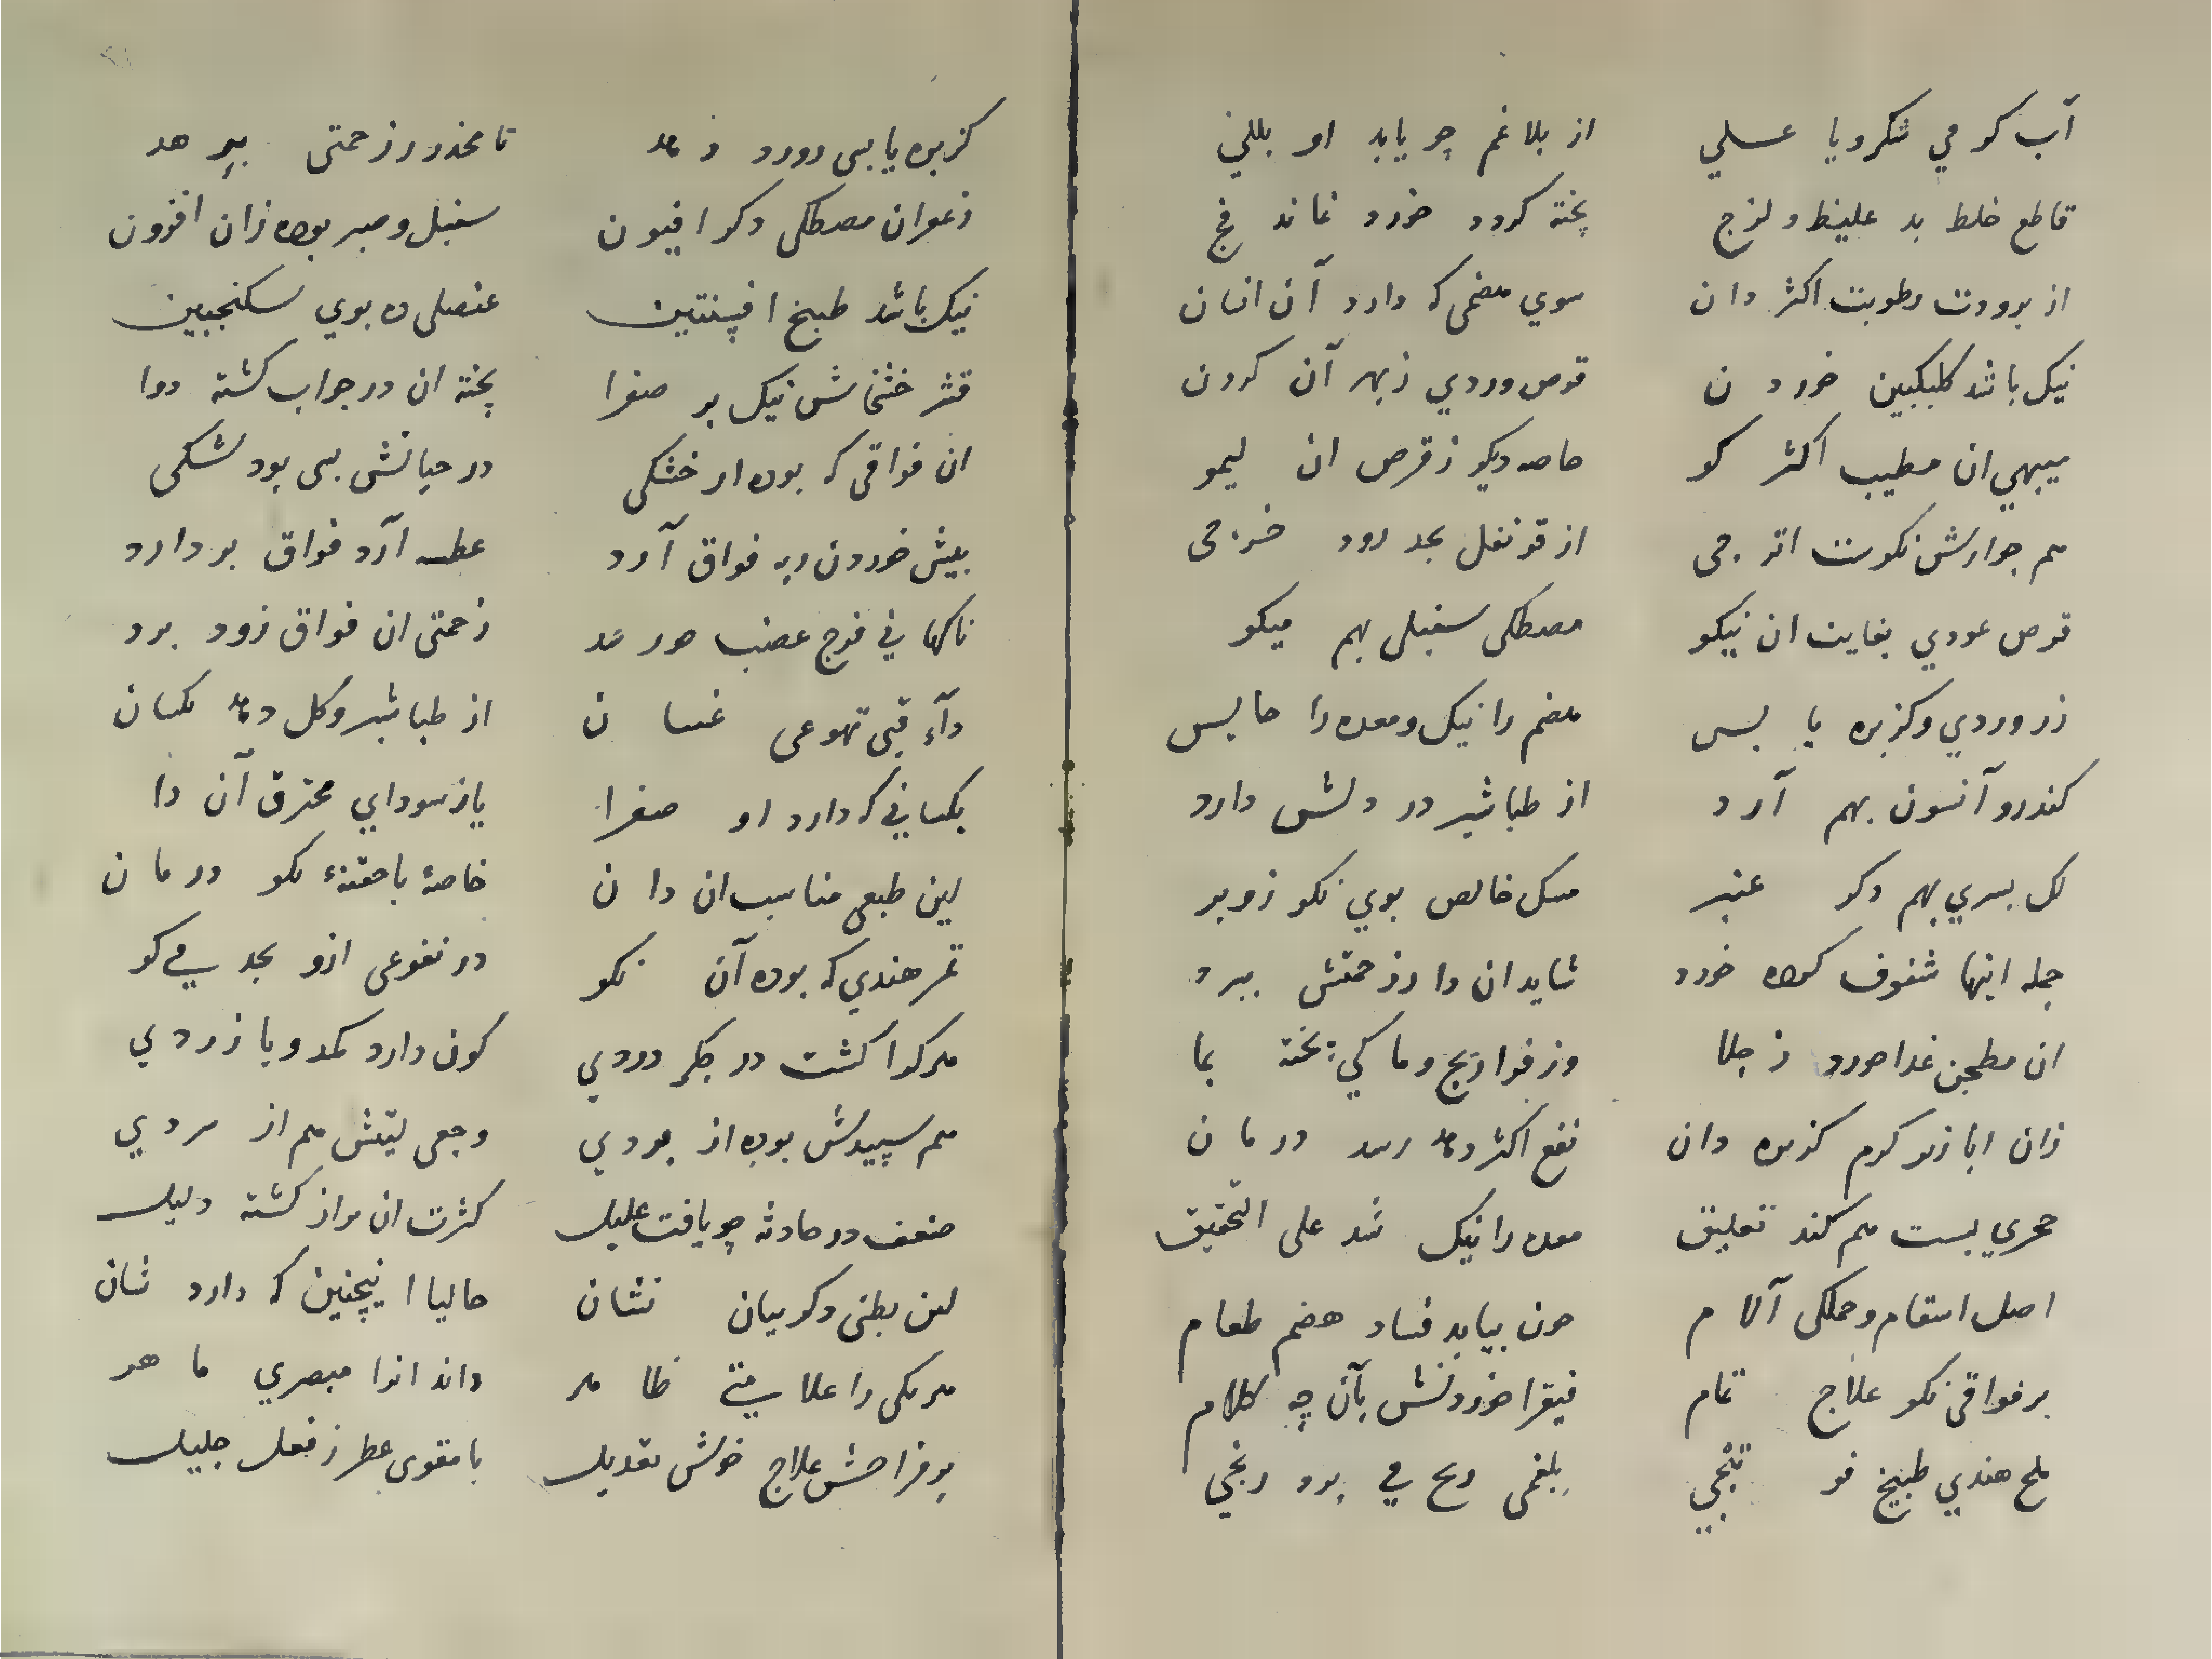 آب کو می شکر و یا عسلي از بلاغم چو یابد او بللي
قاطع خلط بد غلیظ و لزج پخته کردد خورد نماند فج
از برودت رطوبت اکثر دان سوي هضمی که دارد آن انسان
نیک باشد کلبکبین خوردن قرص وردي زبهر آن کردن
میبهي ان مطیب اکثر کو خاصه دیکر ز قرص ان لیمو
هم جوارش نکوست اترجی از قرنفل بجد رود خرجی
قرص عودي بغایت ان نیکو مصطکی سنبلی بهم میکو
زر وردي و کزبره یابس هضم را نیک و معده را حابس
کندر و آنسون بهم آرد از طباشیر در دلش دارد
بهم دکر عنبر مسک خالص بوي نکو زو بر
جمله اینها شفوف کرده خورد شاید ان را ز زحمتش ببرد
ان مطجن غدا خورد ز جلا وز فراریج و ماکي پخته بما
زان ابازیر کرم کزبره دان نفع اکثر دهد رسد درمان
حجري بست هم کند تعلیق معده را نیک شد علی التحقیق
اصل اسقام و جملکی آلام چون بیابد فساد هضم طعام
بر فواقی نکو علاج تمام فیقرا خوردنش بآن چه کلام
ملح هندي طبیخ فوتنجي بلغمی ریح می برد رنجي
کزبره یابس دورد دهد تا مخدر ز زحمتی برهد
زعفران مصطکی دکر افیون سنبل و صبر بوده زان افزون
نیک باشد طبیخ افسنتین عنصلی ده بوي سکنجبین
قشر خشخاش نیک بر صفرا پخته ان در جواب کشته دوا
ان فواقی که بوده از خشکی در حیاتش بسی بود شکی
بیش خوردن ربه فواق آرد عطسه آرد فواق بردارد
ناکهانی فزع عضب زحمتی ان فواق زود برد
دآء قیی تهوعی غسیان از طباشیر و کل دهد یکسان
یکسانی که دارد او صفرا یا ز سوداي محترق آن را
لین طبعی مناسب ان دان خاصه با حقنه نکو درمان
تمر هندي که بوده آن نکو در نقوعی ازو بجد می کو
هرکرا کشت در جکر دردي کون دارد کمد و یا زردي
هم سپیدش بوده از بردي وجعی لیتش هم از سردي
ضعف در حادثه چو یافت علیل کثرت ان براز کشته دلیل
لین بطنی دکر بیان نشان حالیا اینچنین که دارد شان
هر یکی را علامتی ظاهر داند انرا مبصري ماهر
بر مزاجش علاج خوش تعدیل با مقوی عطر ز فعل جلیل